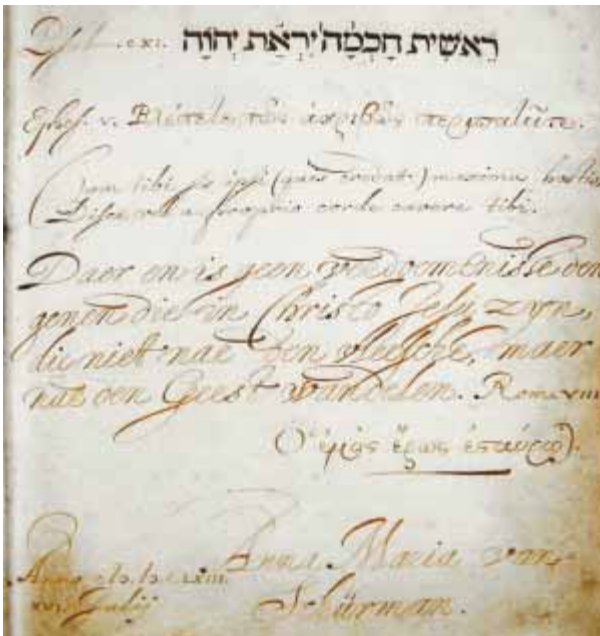 Psal. cxi. רֵאשִׁית חָכְמָה יִרְאַת יְהוָה
Ephes. v. Βλέπετε πῶς ἀκριβῶς περιπατεῖτε.
Cum tibi sis ipsi (quis credat) maxima hostis
Disce vel a proprio corde cavere tibi.
Daer en is geen verdoemenisse den
genen die in Christo Jesu zyn,
die niet nae den vleesche, maer
nae den Geest wandelen. Rom. viii
Ὁ ἐμὸς ἔρως ἐσταύρω).
Anna Maria van
Schürman.
Anno LXIII.
XVI. Julij